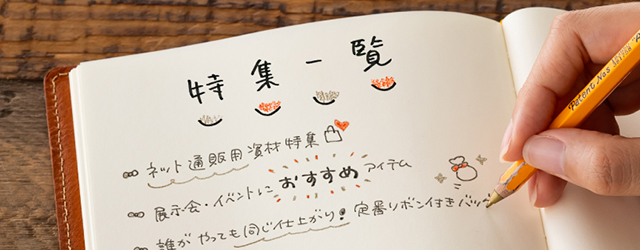 特集一覧
ネット通販用資材特集
展示会・イベントに おすすめ アイテム
誰がやっても同じ仕上がり！定番リボン付きバッグ